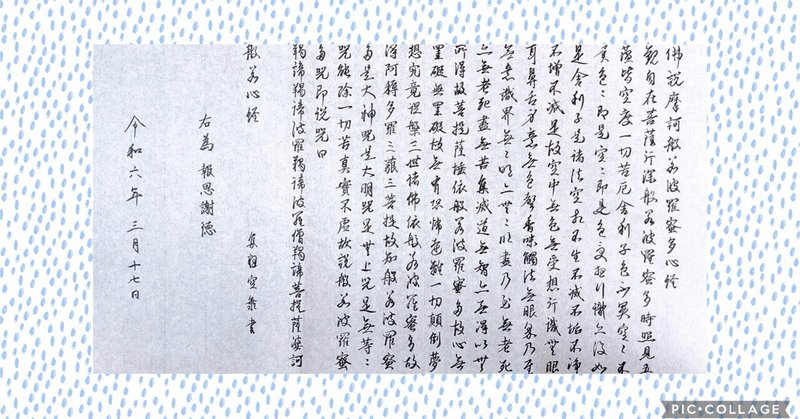 佛説摩訶般若波羅蜜多心経
観自在菩薩行深般若波羅蜜多時照見五
蘊皆空度一切苦厄舎利子色不異空々不
異色々即是空々即是色受想行識亦復如
是舎利子是諸法空相不生不滅不垢不浄
不増不減是故空中無色無受想行識無眼
耳鼻舌身意無色聲香味觸法無眼界乃至
無意識界無々明亦無々明盡乃至無老死
亦無老死盡無苦集滅道無智亦無得以無
所得故菩提薩埵依般若波羅蜜多故心無
罣礙無罣礙故無有恐怖遠離一切顛倒夢
想究竟涅槃三世諸佛依般若波羅蜜多故
得阿耨多羅三藐三菩提故知般若波羅蜜
多是大神咒是大明咒是無上咒是無等々
咒能除一切苦真實不虚故説般若波羅蜜
多咒即説咒曰
羯諦羯諦波羅羯諦波羅僧羯諦菩提薩婆訶
般若心経
右為 報恩謝徳
書
令和六年 三月十七日
PIC•COLLAGE